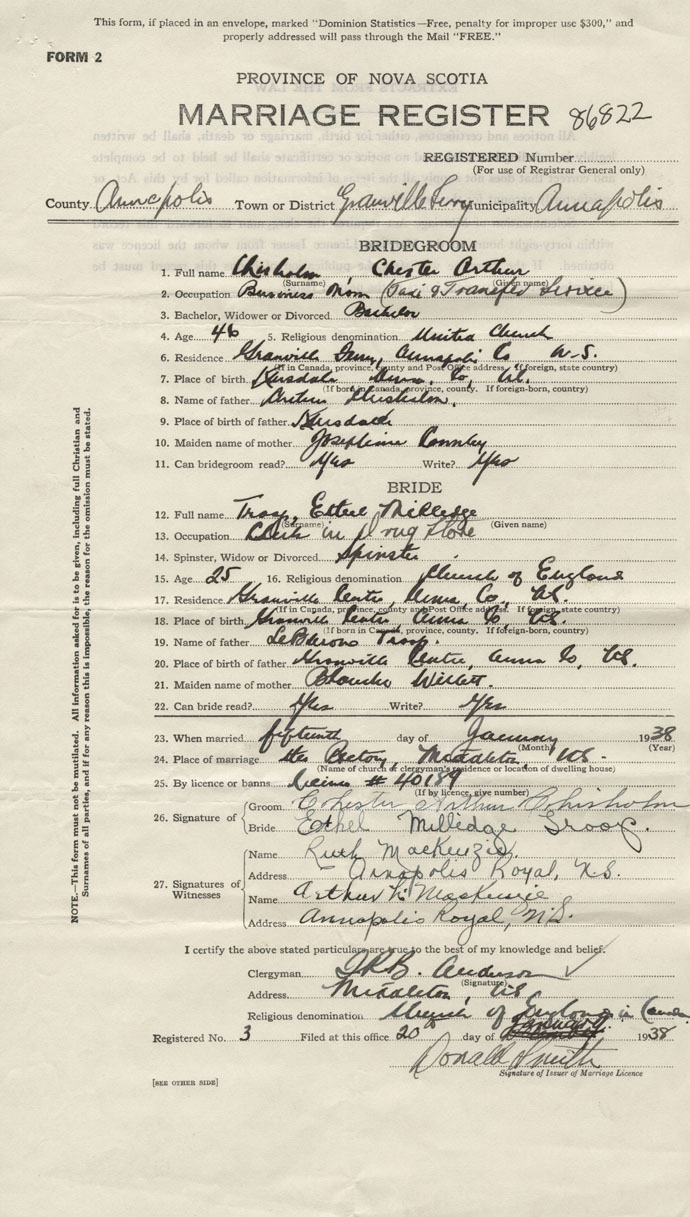 This form, if placed in an envelope, marked "Dominion Statistics—Free, penalty for improper use $300," and
properly addressed will pass through the Mail "FREE."
FORM 2
PROVINCE OF NOVA SCOTIA
MARRIAGE REGISTER 86822
REGISTERED Number
(For use of Registrar General only)
County Annapolis Town or District Granville Ferry Municipality Annapolis
BRIDEGROOM
1. Full name Chisholm, Chester Arthur
(Surname) (Given name)
2. Occupation Business Man (Taxi & Transfer Service)
3. Bachelor, Widower or Divorced Bachelor
4. Age 46 5. Religious denomination United Church
6. Residence Granville Ferry, Annapolis Co N.S.
(If in Canada, province, county and Post Office address. If foreign, state country)
7. Place of birth Anna. Co, N.S.
(If born in Canada, province, county. If foreign-born, country)
8. Name of father Arthur Chisholm.
9. Place of birth of father
10. Maiden name of mother Josephine
11. Can bridegroom read? Yes Write? Yes
BRIDE
12. Full name Troop, Ethel Milledge
(Surname) (Given name)
13. Occupation Clerk in Drug Store
14. Spinster, Widow or Divorced Spinster
15. Age 25 16. Religious denomination Church of England
17. Residence Granville Centre, Anna. Co, N.S.
(If in Canada, province, county and Post Office address. If foreign, state country)
18. Place of birth Granville Centre, Anna Co, N.S.
(If born in Canada, province, county. If foreign-born, country)
19. Name of father LeBaron Troop.
20. Place of birth of father Granville Centre, Anna Co, N.S.
21. Maiden name of mother Blanche Willett.
22. Can bride read? Yes Write? Yes
23. When married fifteenth day of January 1938
(Month) (Year)
24. Place of marriage the Rectory, Middleton, N.S.
(Name of church or clergyman's residence or location of dwelling house)
25. By licence or banns # 40189
(If by licence, give number)
26. Signature of
Groom Chester Arthur Chisholm
Bride Ethel Milledge Troop.
27. Signatures of Witnesses
Name Ruth MacKenzie.
Address Annapolis Royal, N.S.
Name Arthur K. MacKenzie
Address Annapolis Royal, N.S.
I certify the above stated particulars are true to the best of my knowledge and belief.
Clergyman Anderson
(Signature)
Address Middleton, N.S
Religious denomination Church of England in Canada
Registered No. 3 Filed at this office 20th day of January 1938
Donald Smith
Signature of Issuer of Marriage Licence
[SEE OTHER SIDE]
NOTE.—This form must not be mutilated. All information asked for is to be given, including full Christian and
Surnames of all parties, and if for any reason this is impossible, the reason for the omission must be stated.